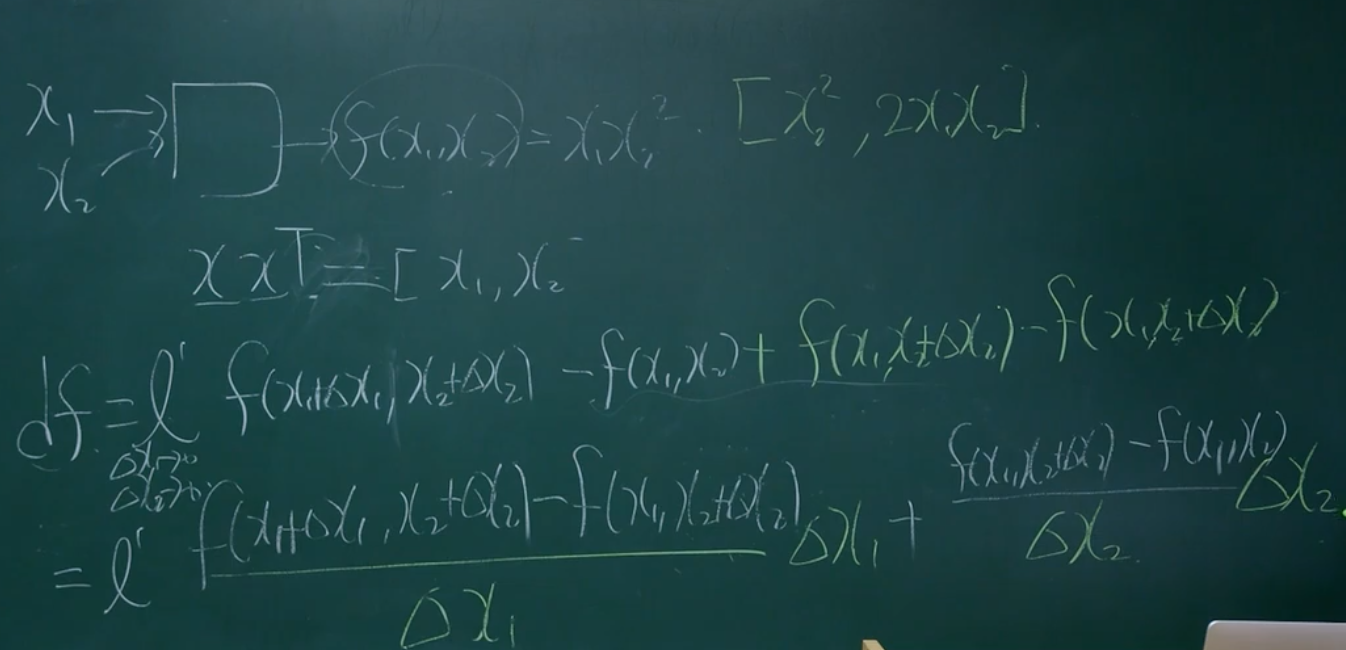 x₁ → → f(x₁,x₂) = x₁x₂². [x₂², 2x₁x₂].
x₂
x xᵀ = [x₁, x₂
df = l' f(x₁+Δx₁, x₂+Δx₂) - f(x₁,x₂) + f(x₁,x₂+Δx₂) - f(x₁,x₂+Δx₂)
Δx₁→0
Δx₂→0
= l' (f(x₁+Δx₁, x₂+Δx₂) - f(x₁,x₂+Δx₂)) / Δx₁ Δx₁ + (f(x₁,x₂+Δx₂) - f(x₁,x₂)) / Δx₂ Δx₂.